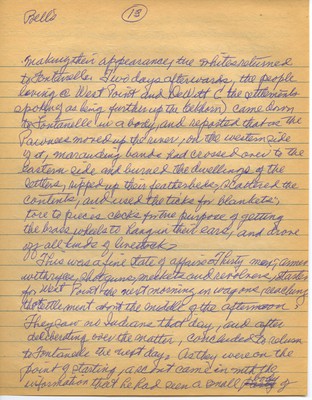 Bell's
(13)
making their appearance, the whites returned
to Fontanelle. Two days afterwards, the people
living @ West Point and DeWitt (the settlements
spoken as being further up the Elkhorn) came down
to Fontanelle in a body, and reported that as the
Pawnees moved up the river, on the western side
of it, marauding bands had crossed over to the
eastern side and burned the dwellings of the
settlers, ripped up their featherbeds, scattered the
contents, and used the ticks for blankets;
tore to pieces clocks for the purpose of getting
the brass wheels to hang in their ears, and drove
off all kinds of livestock.
This was a fine state of affairs. Thirty men, armed
with rifles, shotguns, muskets and revolvers, started
for West Point the next morning in wagons, reaching
that settlement about the middle of the afternoon.
They saw no Indians that day, and after
deliberating over the matter, concluded to return
to Fontanelle the next day. As they were on the
point of starting, a scout came in with the
information that he had seen a small body of